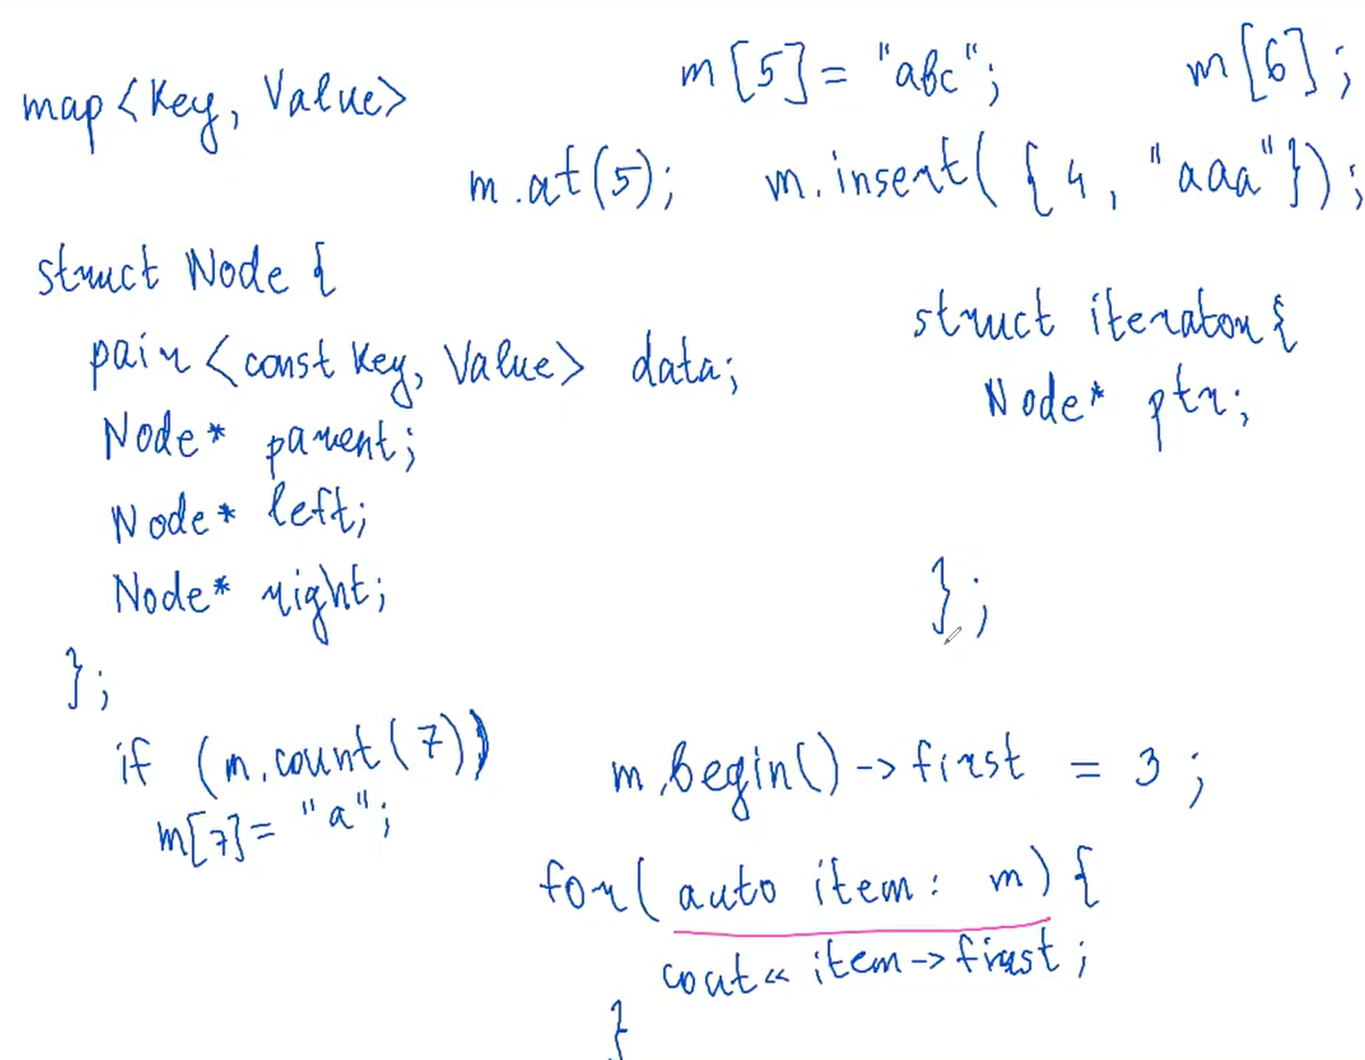 map<Key, Value>
m[5] = "abc";
m[6];
m.at(5);
m.insert({4, "aaa"});
struct Node {
pair<const Key, Value> data;
Node* parent;
Node* left;
Node* right;
};
struct iterator{
Node* ptr;
};
if (m.count(7))
m[7] = "a";
m.begin()->first = 3;
for(auto item: m){
cout << item->first;
}